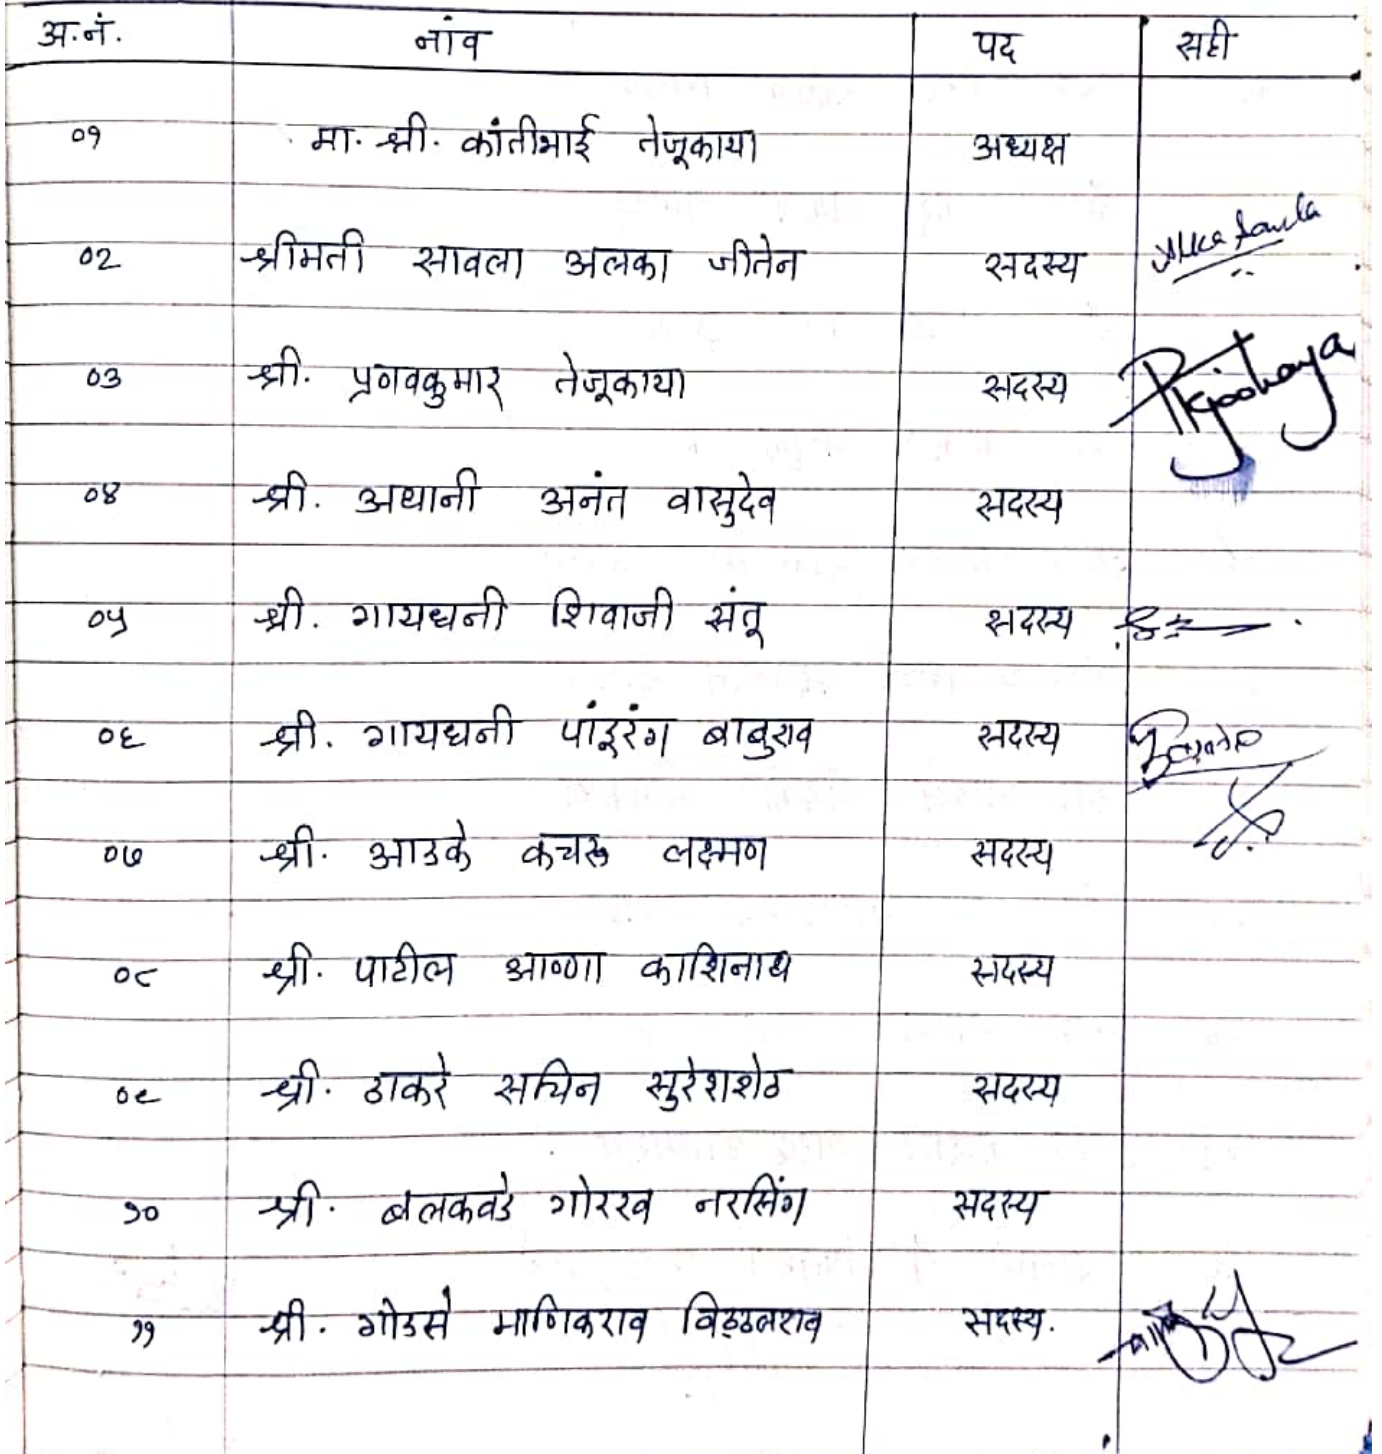 अ.नं. नांव पद सही
०१ मा. श्री. कांतीभाई तेजूकाया अध्यक्ष
०२ श्रीमती सावला अलका जीतेन सदस्य Alka Savla
०३ श्री. प्रणवकुमार तेजूकाया सदस्य
०४ श्री. अथानी अनंत वासुदेव सदस्य
०५ श्री. गायधनी शिवाजी संतू सदस्य
०६ श्री. गायधनी पांडूरंग बाबुराव सदस्य
०७ श्री. आडके कचरू लक्ष्मण सदस्य
०८ श्री. पाटील आण्णा काशिनाथ सदस्य
०९ श्री. ठाकरे सचिन सुरेशशेठ सदस्य
१० श्री. बलकवडे गोरख नरसिंग सदस्य
११ श्री. गोडसे माणिकराव विठ्ठलराव सदस्य.